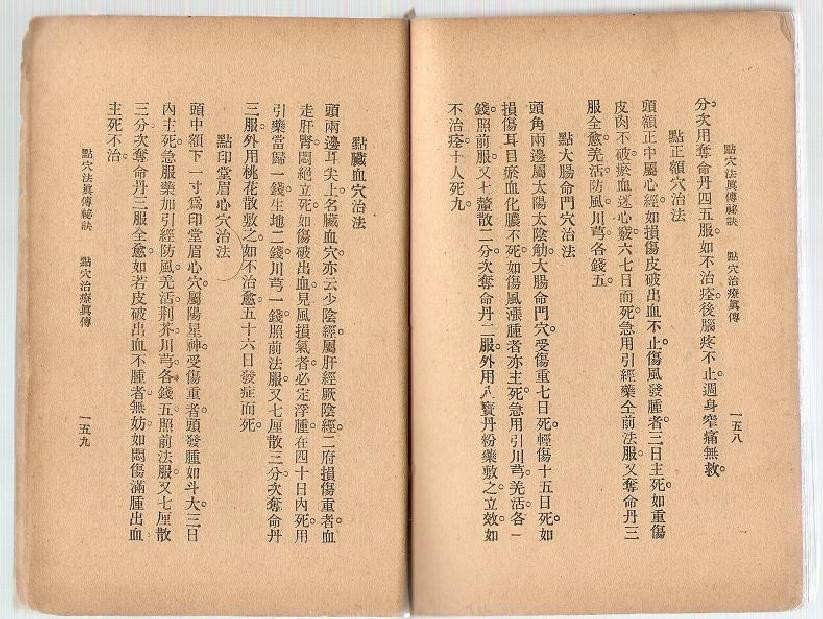 點穴法眞傳祕訣　點穴治療眞傳　一五八
分次用奪命丹四五服。如不治痊。後腦疼不止。週身窄痛無救。
點正額穴治法
頭額正中屬心經。如損傷皮破出血不止。傷風發腫者。三日主死。如重傷
皮肉不破。瘀血迷心竅。六七日而死。急用引經藥仝前法服。又奪命丹三
服全愈。羌活防風川芎各錢五。
點大腸命門穴治法
頭角兩邊屬太陽太陰。魰大腸命門穴。受傷重七日死。輕傷十五日死。如
損傷耳目。瘀血化膿不死。如傷風漲腫者。亦主死。急用引川芎。羌活。各一
錢。照前服。又七釐散二分。次奪命丹二服。外用八寶丹粉藥敷之。立效。如
不治痊。十人死九。
點臟血穴治法
頭兩邊耳尖上名臟血穴。亦云少陰經。屬肝經厥陰經。二府損傷重者。血
走肝腎。悶絕立死。如傷破出血。見風損氣者。必定浮腫。在四十日內死。用
引藥當歸一錢。生地二錢。川芎一錢。照前法服。又七厘散三分。次奪命丹
三服。外用桃花散敷之。如不治愈。五十六日發症而死。
點印堂眉心穴治法
頭中額下一寸爲印堂眉心穴。屬陽星神。受傷重者。頭發腫如斗大。三日
內主死。急服藥加引經防風羌活荆芥川芎各錢五。照前法服。又七厘散
三分。次奪命丹三服全愈。如若皮破出血不腫者。無妨。如悶傷滿腫出血
主死不治。
點穴法眞傳祕訣　點穴治療眞傳　一五九